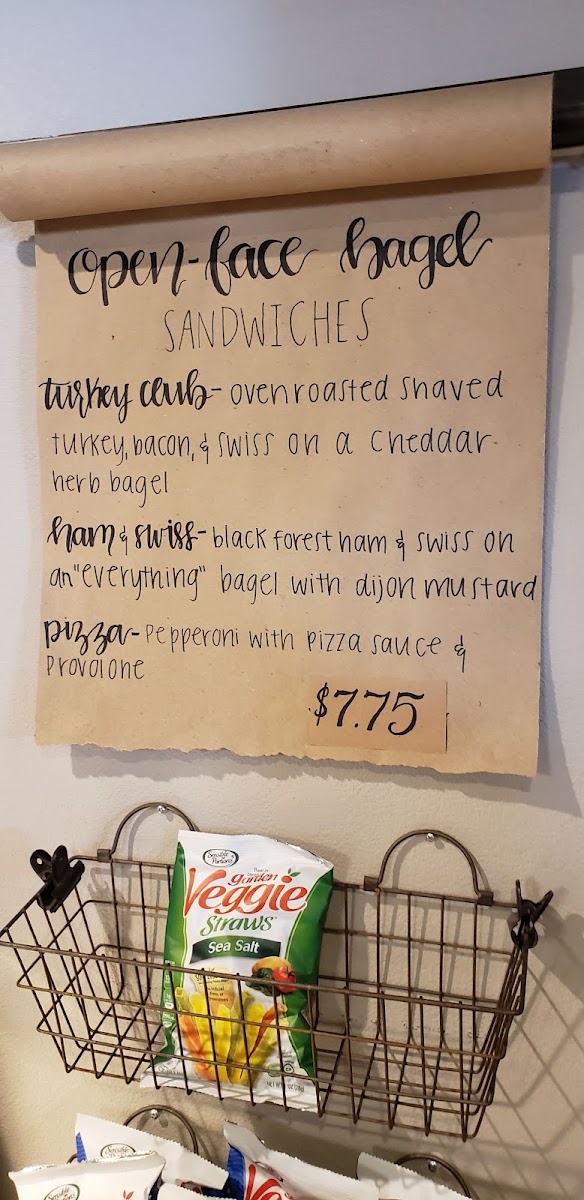 open-face bagel
SANDWICHES
turkey club - oven roasted shaved
turkey, bacon, & swiss on a cheddar
herb bagel
ham & swiss - black forest ham & swiss on
an "everything" bagel with dijon mustard
pizza - Pepperoni with pizza sauce &
Provolone
$7.75
Sensible
Portions
garden
Veggie
Straws
Sea Salt
Sensible